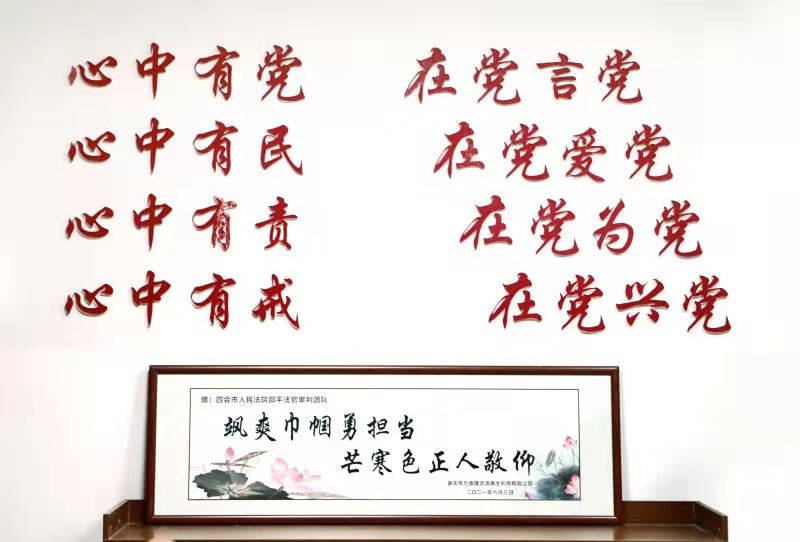 心中有党
心中有民
心中有责
心中有戒
在党言党
在党爱党
在党为党
在党兴党
赠：四会市人民法院邵平法官审判团队
飒爽巾帼勇担当
芒寒色正人敬仰
肇庆市万泰隆资源再生利用有限公司
二〇二一年六月三日